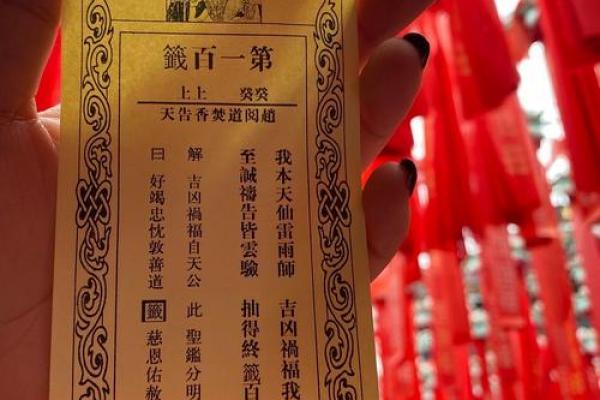 第一百籤
癸癸 上上
趙閱道焚香告天
我本天仙雷雨師 吉凶禍福我
至誠禱告皆雲驗 抽得終籤百
解 吉凶禍福自天公 此 聖鑑分明
曰 好竭忠忱敦善道 籤 慈恩佑赦